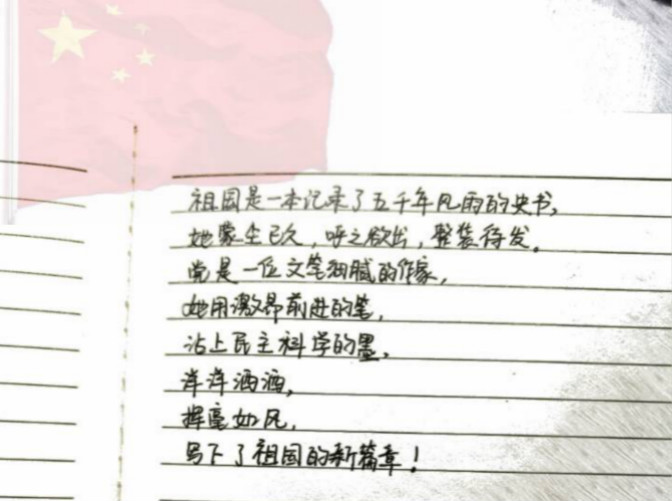 祖国是一本记录了五千年风雨的史书,
她蒙尘已久,呼之欲出,整装待发。
党是一位文笔细腻的作家,
她用激昂前进的笔,
沾上民主科学的墨,
洋洋洒洒,
挥毫如风,
写下了祖国的新篇章!